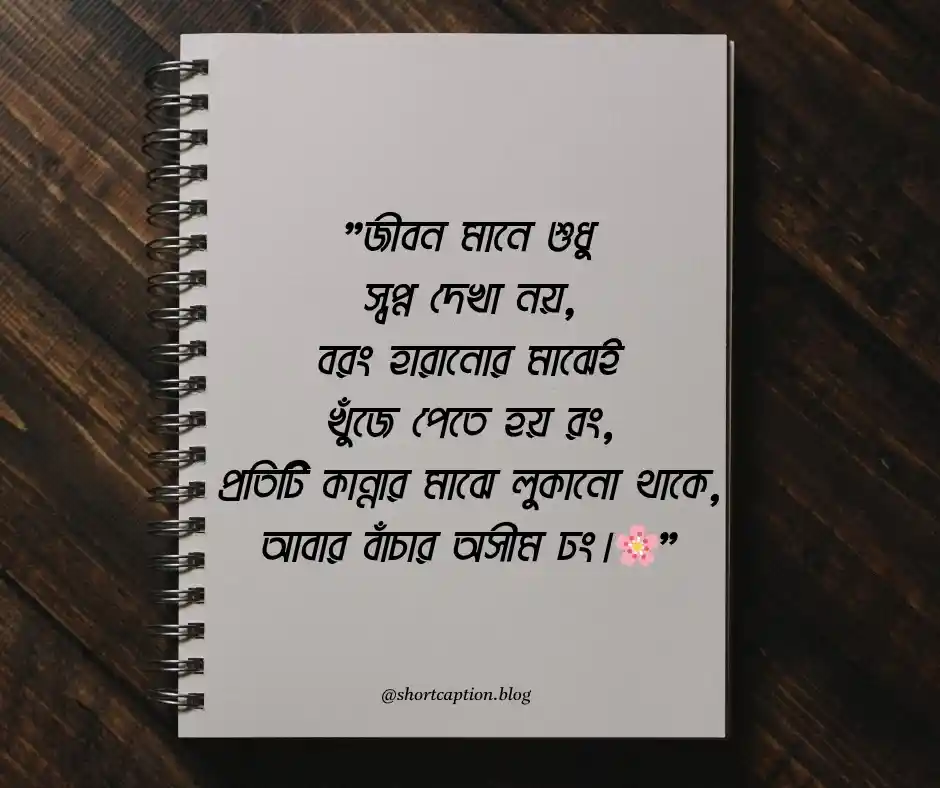 "জীবন মানে শুধু
স্বপ্ন দেখা নয়,
বরং হারানোর মাঝেই
খুঁজে পেতে হয় রং,
প্রতিটি কান্নার মাঝে লুকানো থাকে,
আবার বাঁচার অসীম ঢং।🌸"
@shortcaption.blog